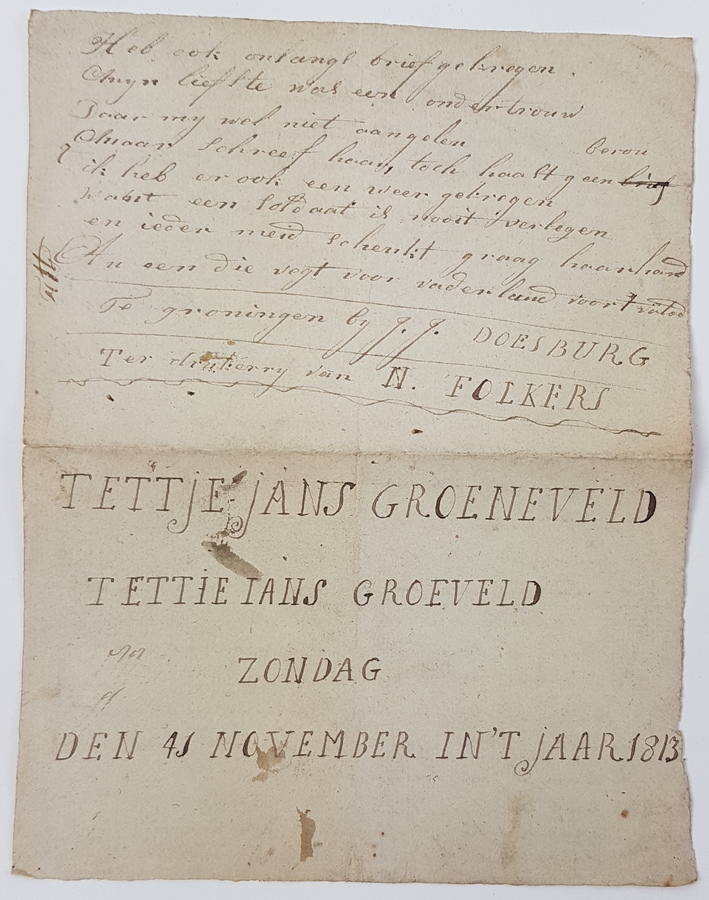 Heb ook onlangs brief gekregen.
Myn liefste was een ondertrouw
Daar my wel niet aangelen
berou
Maar schreef haar, toch haast geen
ik heb er ook een weer gekregen
want een soldaat is nooit verlegen
en ieder meid schenkt graag haar hand
An een die vegt voor vaderland
Te groningen by J. J. DOESBURG
Ter drukerry van N. FOLKERS
TETTJE JANS GROENEVELD
TETTIE IANS GROEVELD
ZONDAG
DEN 41 NOVEMBER IN'T JAAR 1813